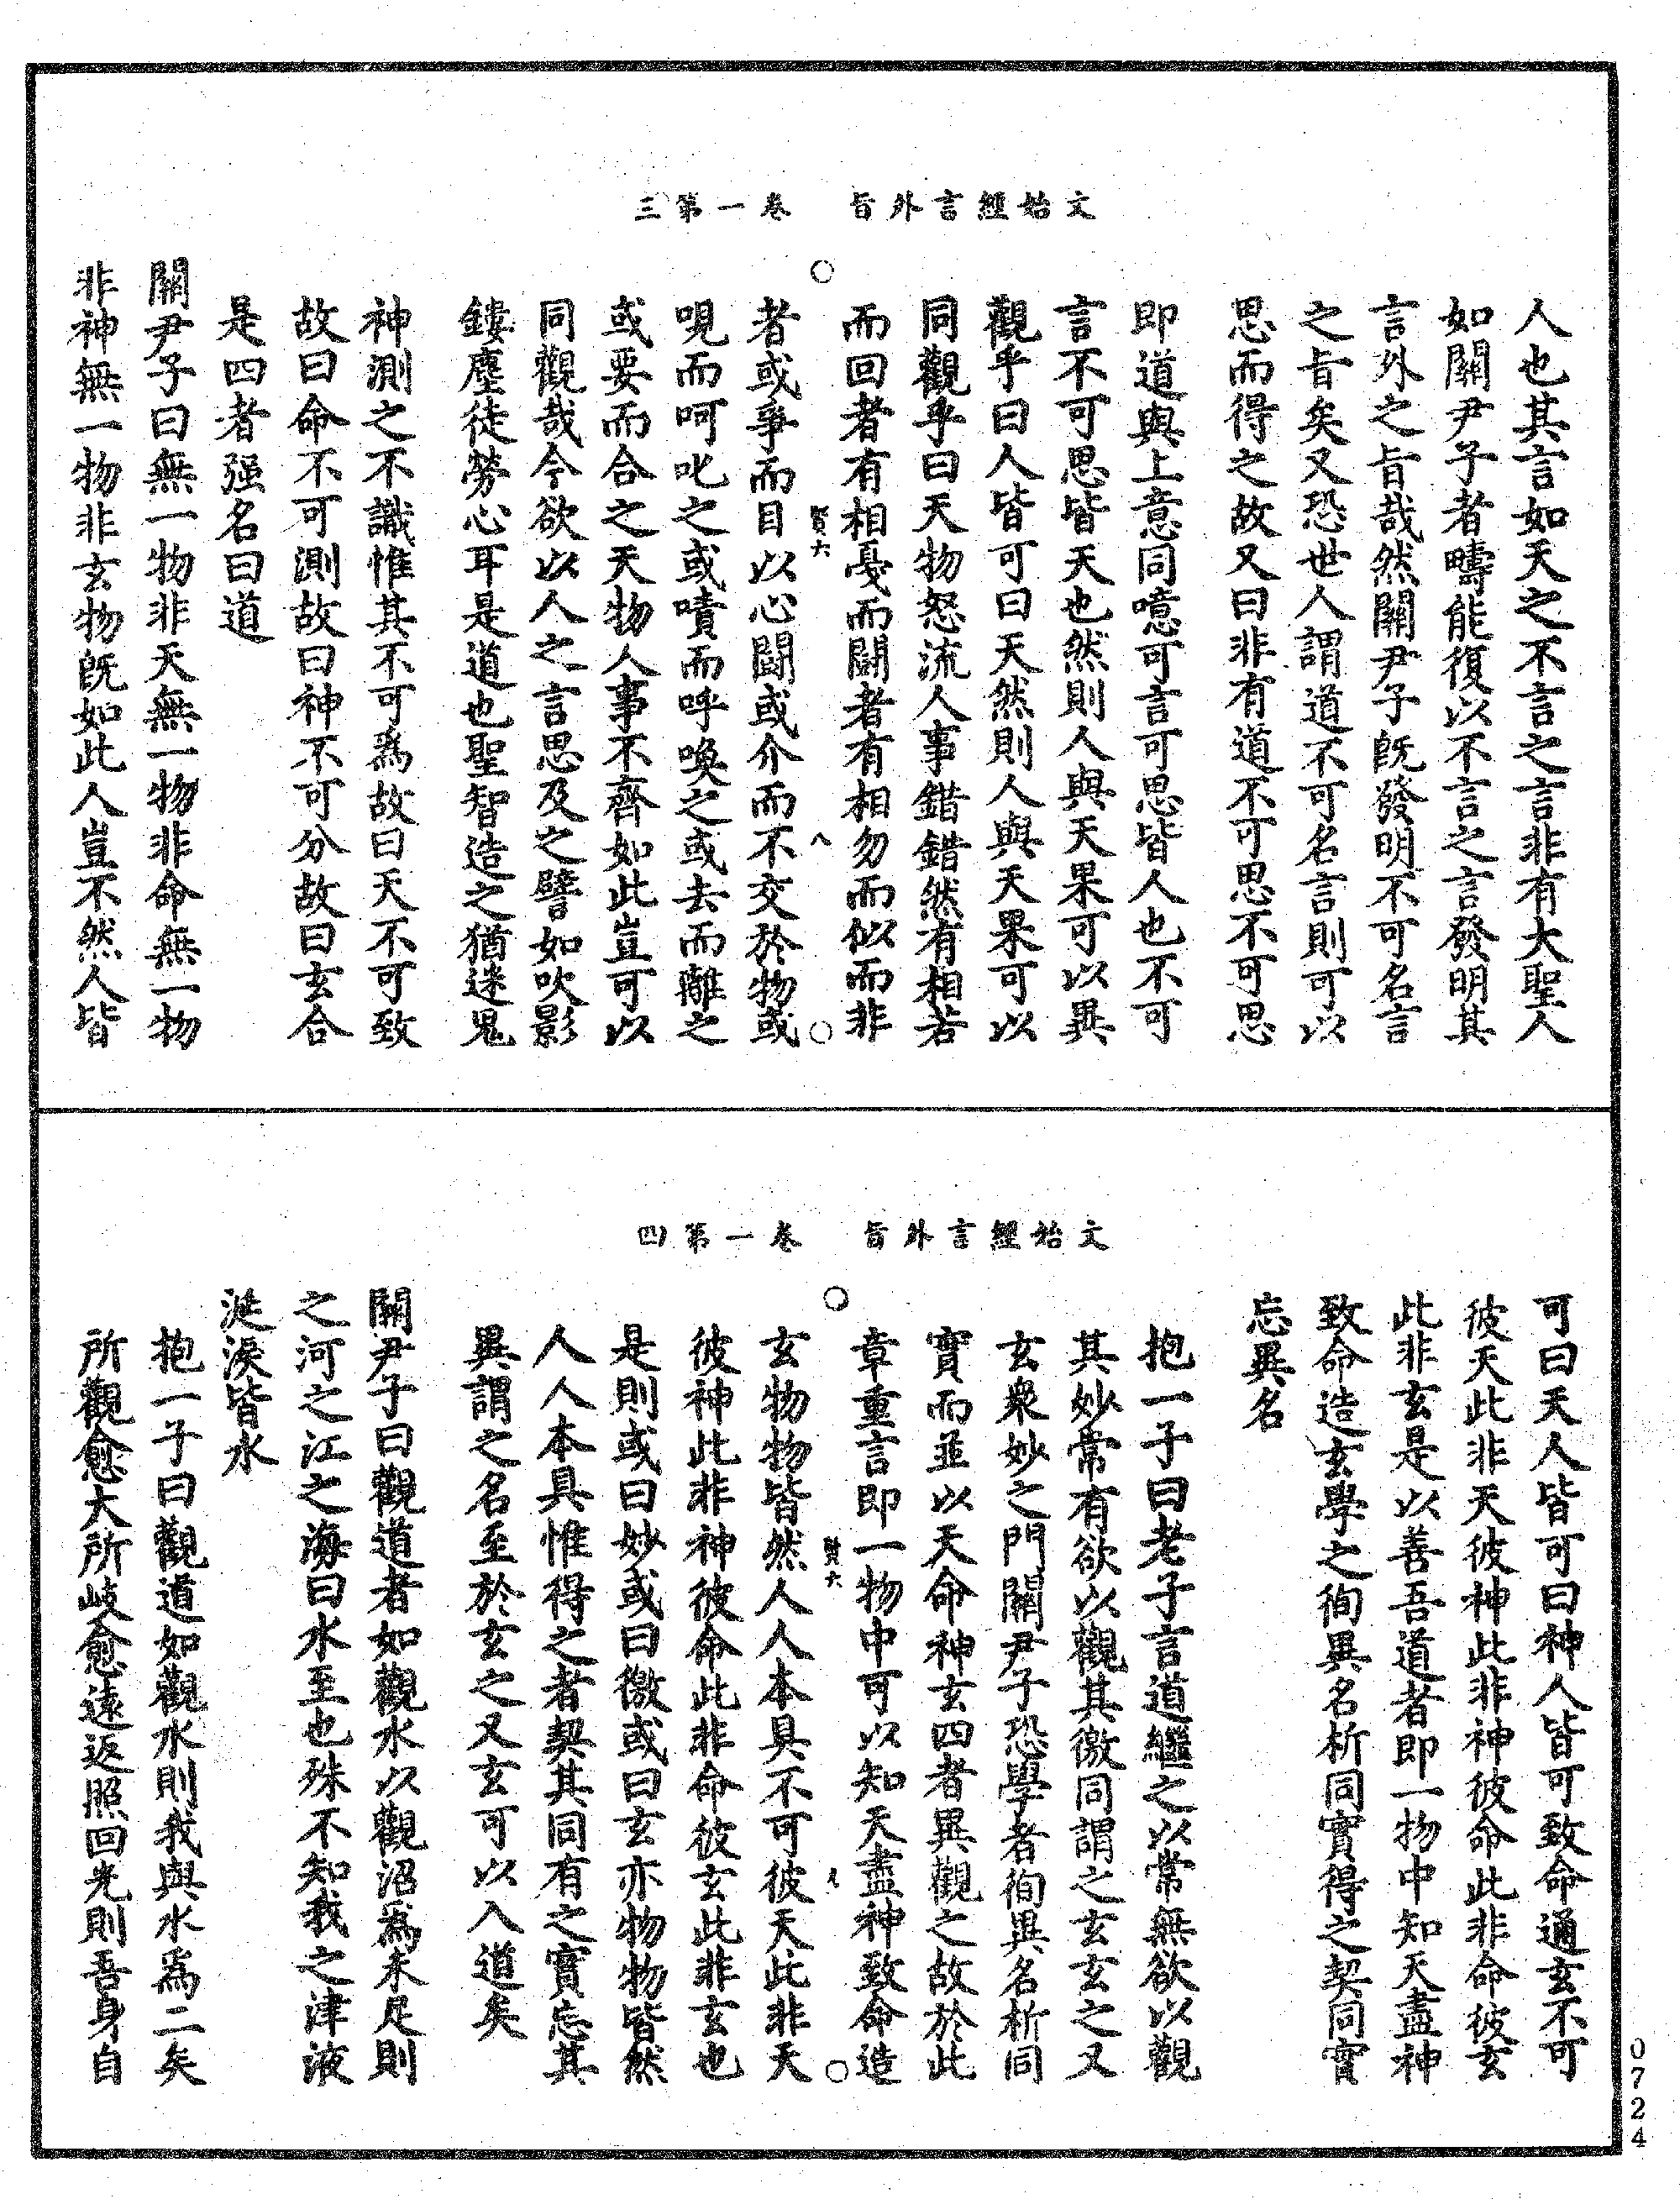 文始經言外旨　卷一第三
人也其言如天之不言之言非有大聖人
如關尹子者疇能復以不言之言發明其
言外之旨哉然關尹子旣發明不可名言
之旨矣又恐世人謂道不可名言則可以
思而得之故又曰非有道不可思不可思
即道與上意同噫可言可思皆人也不可
言不可思皆天也然則人與天果可以異
觀乎曰人皆可曰天然則人與天果可以
同觀乎曰天物怒流人事錯錯然有相若
而回者有相戞而鬭者有相勿而似而非
賢六
八
者或爭而目以心鬭或介而不交於物或
哯而呵叱之或嘖而呼喚之或去而離之
或要而合之天物人事不齊如此豈可以
同觀哉今欲以人之言思及之譬如吹影
鏤塵徒勞心耳是道也聖智造之猶迷鬼
神測之不識惟其不可爲故曰天不可致
故曰命不可測故曰神不可分故曰玄合
是四者强名曰道
關尹子曰無一物非天無一物非命無一物
非神無一物非玄物旣如此人豈不然人皆
文始經言外旨　卷一第四
可曰天人皆可曰神人皆可致命通玄不可
彼天此非天彼神此非神彼命此非命彼玄
此非玄是以善吾道者即一物中知天盡神
致命造玄學之徇異名析同實得之契同實
忘異名
抱一子曰老子言道繼之以常無欲以觀
其妙常有欲以觀其徼同謂之玄玄之又
玄衆妙之門關尹子恐學者徇異名析同
實而並以天命神玄四者異觀之故於此
章重言即一物中可以知天盡神致命造
賢六
玄物物皆然人人本具不可彼天此非天
彼神此非神彼命此非命彼玄此非玄也
是則或曰妙或曰徼或曰玄亦物物皆然
人人本具惟得之者契其同有之實忘其
異謂之名至於玄之又玄可以入道矣
關尹子曰觀道者如觀水以觀沼爲未足則
之河之江之海曰水至也殊不知我之津液
涎淚皆水
抱一子曰觀道如觀水則我與水爲二矣
所觀愈大所岐愈遠返照回光則吾身自
0724